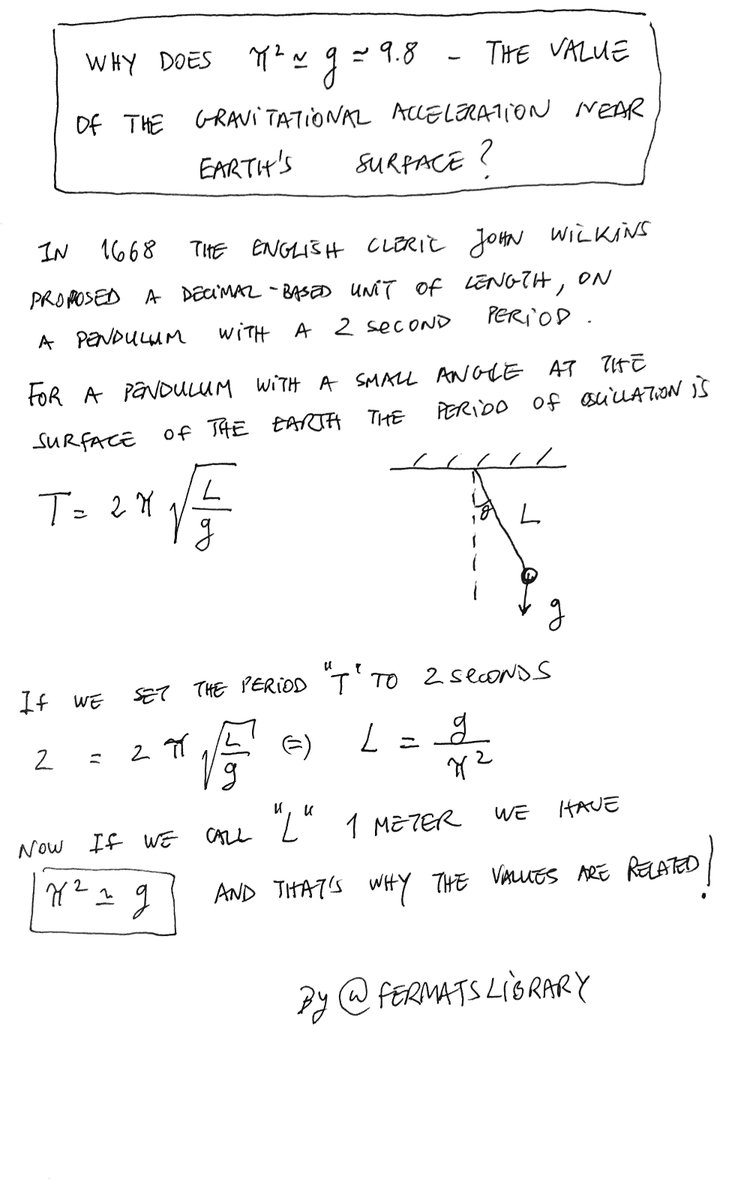 WHY DOES π² ≃ g ≃ 9.8 - THE VALUE
OF THE GRAVITATIONAL ACCELERATION NEAR
EARTH'S SURFACE?
IN 1668 THE ENGLISH CLERIC JOHN WILKINS
PROPOSED A DECIMAL-BASED UNIT OF LENGTH, ON
A PENDULUM WITH A 2 SECOND PERIOD.
FOR A PENDULUM WITH A SMALL ANGLE AT THE
SURFACE OF THE EARTH THE PERIOD OF OSCILLATION IS
T = 2π √(L/g)
θ L
g
If WE SET THE PERIOD "T" TO 2 SECONDS
2 = 2π √(L/g) (=) L = g/π²
NOW If WE CALL "L" 1 METER WE HAVE
π² ≃ g AND THAT'S WHY THE VALUES ARE RELATED!
By @FERMATSLIBRARY